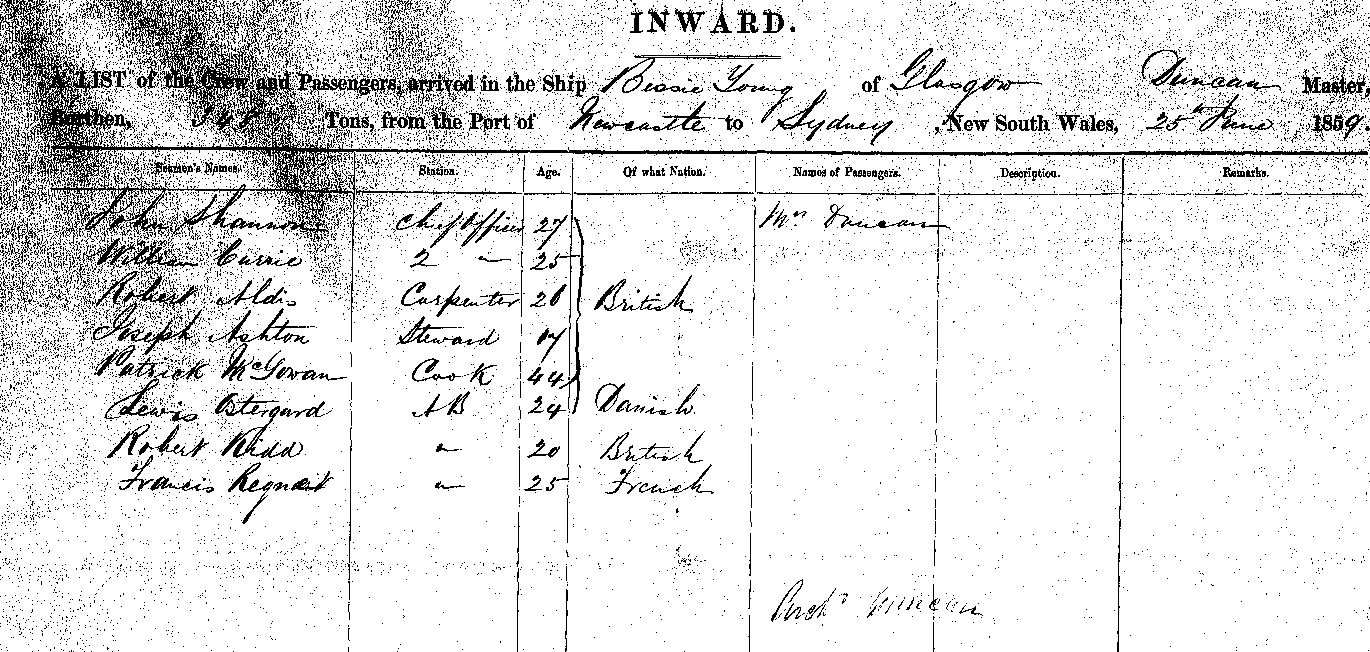 INWARD.
A LIST of the Crew and Passengers, arrived in the Ship Bessie Young of Glasgow Duncan Master,
Burthen, 348 Tons, from the Port of Newcastle to Sydney, New South Wales, 25th June 1859.
Seamen's Names. Station. Age. Of what Nation. Names of Passengers. Description. Remarks.
John Shannon Chief Officer 27 Mrs Duncan
William Currie 2 " 25
Robert Aldis Carpenter 26 British
Joseph Ashton Steward 17
Patrick McGowan Cook 44
Lewis Ostergard AB 24 Danish
Robert Kidd " 20 British
Francis Regnart " 25 French
Archd Duncan